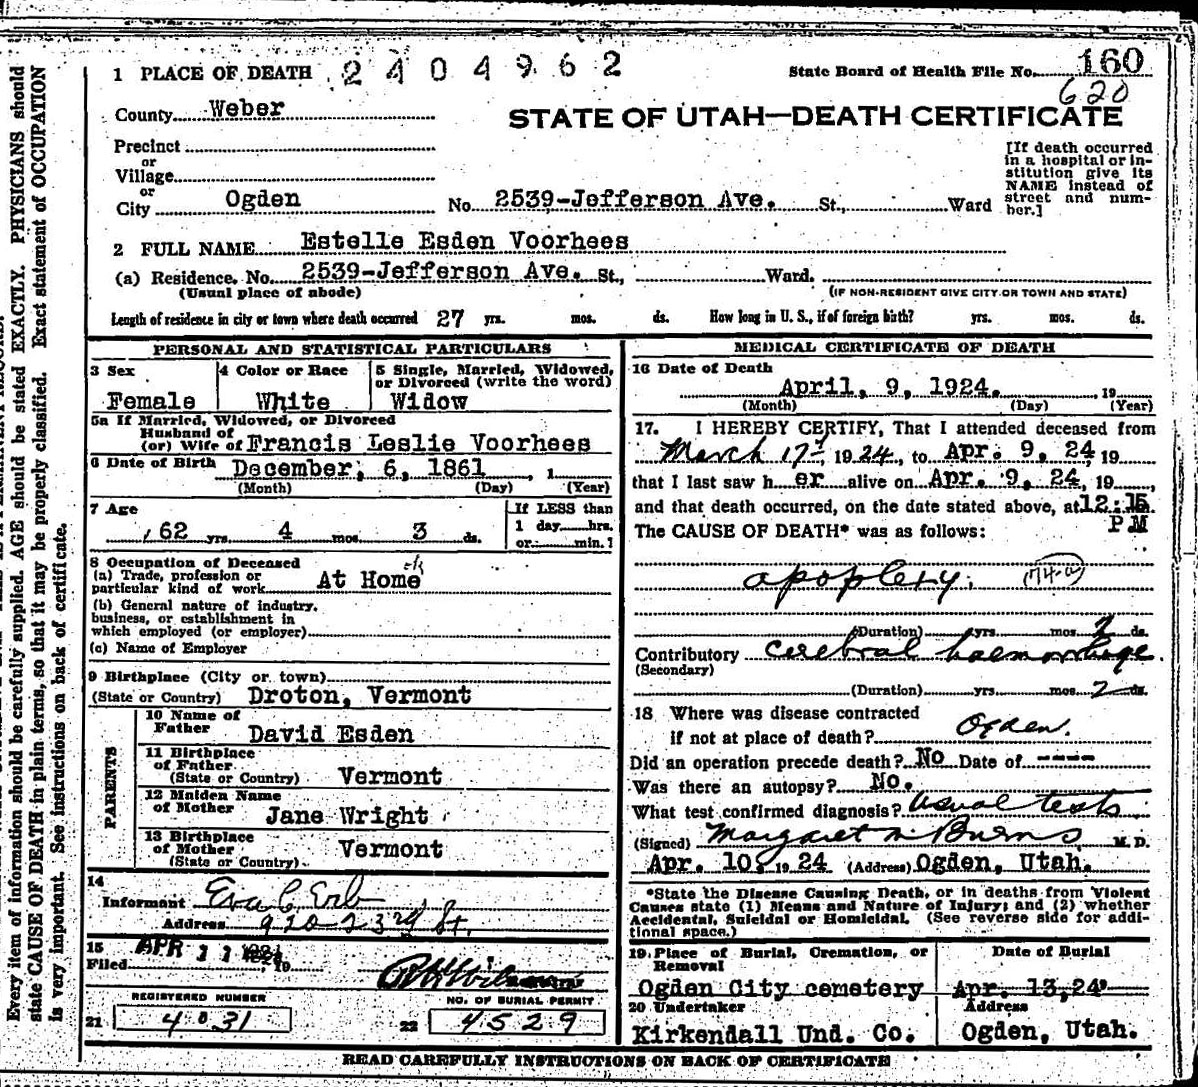 1 PLACE OF DEATH 2404962 State Board of Health File No. 160
620
County Weber STATE OF UTAH—DEATH CERTIFICATE
Precinct
or
Village
or
City Ogden No. 2539-Jefferson Ave. St., Ward
[If death occurred
in a hospital or in-
stitution give its
NAME instead of
street and num-
ber.]
2 FULL NAME Estelle Esden Voorhees
(a) Residence. No. 2539-Jefferson Ave. St., Ward.
(Usual place of abode) (IF NON-RESIDENT GIVE CITY OR TOWN AND STATE)
Length of residence in city or town where death occurred 27 yrs. mos. ds. How long in U. S., if of foreign birth? yrs. mos. ds.
PERSONAL AND STATISTICAL PARTICULARS
3 Sex
Female
4 Color or Race
White
5 Single, Married, Widowed,
or Divorced (write the word)
Widow
5a If Married, Widowed, or Divorced
Husband of
(or) Wife of Francis Leslie Voorhees
6 Date of Birth December, 6, 1861, 1
(Month) (Day) (Year)
7 Age
62 yrs. 4 mos. 3 ds.
If LESS than
1 day hrs.
or min.?
8 Occupation of Deceased
(a) Trade, profession or
particular kind of work At Home
(b) General nature of industry,
business, or establishment in
which employed (or employer)
(c) Name of Employer
9 Birthplace (City or town)
(State or Country) Droton, Vermont
PARENTS
10 Name of
Father David Esden
11 Birthplace
of Father
(State or Country) Vermont
12 Maiden Name
of Mother Jane Wright
13 Birthplace
of Mother
(State or Country) Vermont
14
Informant Eva C Erb
Address 920-23rd St.
15 APR 11 1924
Filed , 19
REGISTERED NUMBER
21 4031
NO. OF BURIAL PERMIT
22 4529
MEDICAL CERTIFICATE OF DEATH
16 Date of Death
April, 9, 1924. 19
(Month) (Day) (Year)
17. I HEREBY CERTIFY, That I attended deceased from
March 17, 1924, to Apr. 9, 24, 19
that I last saw her alive on Apr. 9, 24, 19,
and that death occurred, on the date stated above, at 12:15 m.
PM
The CAUSE OF DEATH* was as follows:
apoplexy. (74-a)
(Duration) yrs. mos. 2 ds.
Contributory cerebral haemorrhage
(Secondary)
(Duration) yrs. mos. 2 ds.
18 Where was disease contracted
if not at place of death? Ogden.
Did an operation precede death? No Date of ----
Was there an autopsy? No.
What test confirmed diagnosis? usual tests
(Signed) Margaret M Burns, M. D.
Apr. 10, 1924 (Address) Ogden, Utah.
*State the Disease Causing Death, or in deaths from Violent
Causes state (1) Means and Nature of Injury; and (2) whether
Accidental, Suicidal or Homicidal. (See reverse side for addi-
tional space.)
19. Place of Burial, Cremation, or
Removal
Ogden City cemetery
Date of Burial
Apr. 13,24
20 Undertaker
Kirkendall Und. Co.
Address
Ogden, Utah.
READ CAREFULLY INSTRUCTIONS ON BACK OF CERTIFICATE
Every item of information should be carefully supplied. AGE should be stated EXACTLY. PHYSICIANS should
state CAUSE OF DEATH in plain terms, so that it may be properly classified. Exact statement of OCCUPATION
is very important. See instructions on back of certificate.